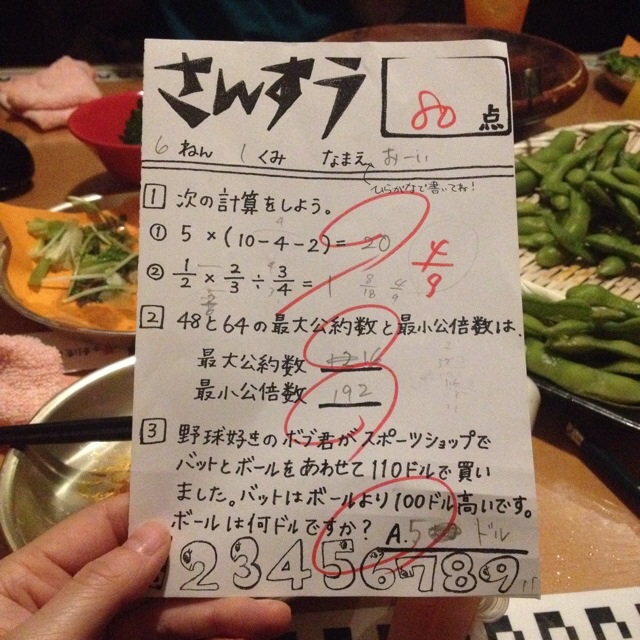 さんすう
80点
6ねん 1くみ なまえ おーい
ひらがなで書いてね!
1 次の計算をしよう。
① 5×(10-4-2)= 20
② 1/2×2/3÷3/4= 1 8/18 4/9
4/9
2 48と64の最大公約数と最小公倍数は、
最大公約数 16
最小公倍数 192
3 野球好きのボブ君がスポーツショップで
バットとボールをあわせて110ドルで買い
ました。バットはボールより100ドル高いです。
ボールは何ドルですか? A.5 ドル
23456789